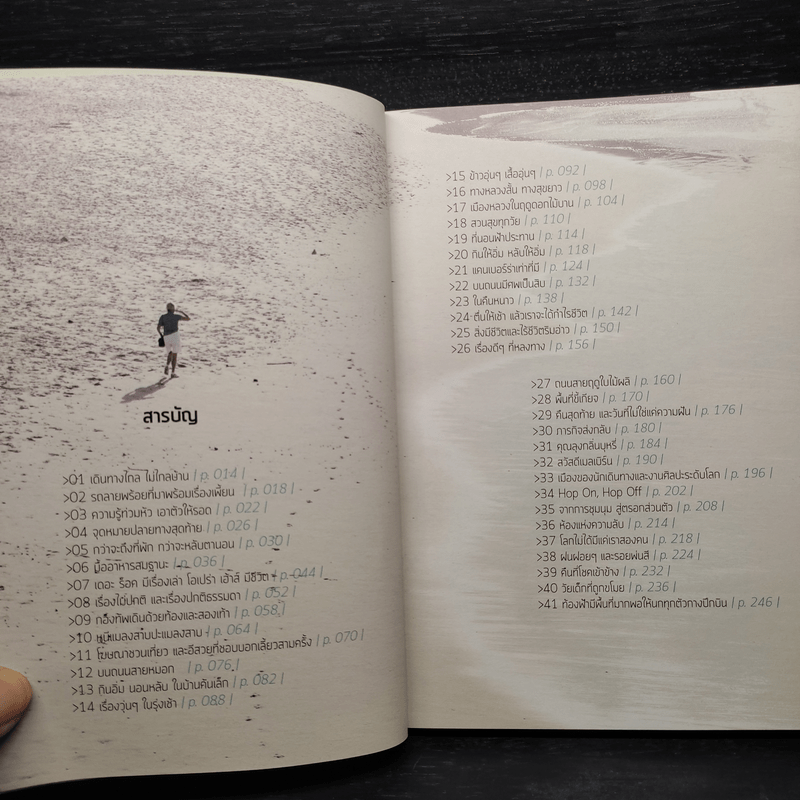 สารบัญ
>01 เดินทางไกล ไม่ไกลบ้าน | p. 014 |
>02 รถลายพร้อยที่มาพร้อมเรื่องเพี้ยน | p. 018 |
>03 ความรู้ท่วมหัว เอาตัวให้รอด | p. 022 |
>04 จุดหมายปลายทางสุดท้าย | p. 026 |
>05 กว่าจะถึงที่พัก กว่าจะหลับตานอน | p. 030 |
>06 มื้ออาหารสมฐานะ | p. 036 |
>07 เดอะ ร็อค มีเรื่องเล่า โอเปร่า เฮ้าส์ มีชีวิต | p. 044 |
>08 เรื่องไม่ปกติ และเรื่องปกติธรรมดา | p. 052 |
>09 กองทัพเดินด้วยท้องและสองเท้า | p. 058 |
>10 หมู่แมลงสาบปะแมลงสาบ | p. 064 |
>11 โฆษณาชวนเที่ยว และอีสวยที่ชอบบอกเลี้ยวสามครั้ง | p. 070 |
>12 บนถนนสายหมอก | p. 076 |
>13 กินอิ่ม นอนหลับ ในบ้านคันเล็ก | p. 082 |
>14 เรื่องวุ่นๆ ในรุ่งเช้า | p. 088 |
>15 ข้าวอุ่นๆ เสื้ออุ่นๆ | p. 092 |
>16 ทางหลวงสั้น ทางสุขยาว | p. 098 |
>17 เมืองหลวงในฤดูดอกไม้บาน | p. 104 |
>18 สวนสุขทุกวัย | p. 110 |
>19 ที่นอนฟ้าประทาน | p. 114 |
>20 กินให้อิ่ม หลับให้อิ่ม | p. 118 |
>21 แคนเบอร์ร่าเท่าที่มี | p. 124 |
>22 บนถนนมีศพเป็นสิบ | p. 132 |
>23 ในคืนหนาว | p. 138 |
>24 ตื่นให้เช้า แล้วเราจะได้กำไรชีวิต | p. 142 |
>25 สิ่งมีชีวิตและไร้ชีวิตริมอ่าว | p. 150 |
>26 เรื่องดีๆ ที่หลงทาง | p. 156 |
>27 ถนนสายฤดูใบไม้ผลิ | p. 160 |
>28 พื้นที่ขี้เกียจ | p. 170 |
>29 คืนสุดท้าย และวันที่ไม่ใช่แค่ความฝัน | p. 176 |
>30 ภารกิจส่งกลับ | p. 180 |
>31 คุณลุงกลิ่นบุหรี่ | p. 184 |
>32 สวัสดีเมลเบิร์น | p. 190 |
>33 เมืองของนักเดินทางและงานศิลปะระดับโลก | p. 196 |
>34 Hop On, Hop Off | p. 202 |
>35 จากการชุมนุม สู่ตรอกส่วนตัว | p. 208 |
>36 ห้องแห่งความลับ | p. 214 |
>37 โลกไม่ได้มีแค่เราสองคน | p. 218 |
>38 ฝนฝอยๆ และรอยพ่นสี | p. 224 |
>39 คืนที่โชคเข้าข้าง | p. 232 |
>40 วัยเด็กที่ถูกขโมย | p. 236 |
>41 ท้องฟ้ามีพื้นที่มากพอให้นกทุกตัวกางปีกบิน | p. 246 |